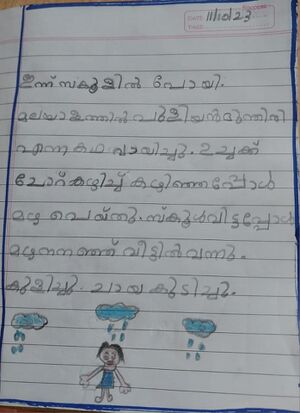 DATE 11/10/23
ഇന്ന് സ്കൂളിൽ പോയി.
മലയാളത്തിൽ പുളിയൻമുന്തിരി
എന്ന കഥ വായിച്ചു. ഉച്ചക്ക്
ചോറ് കഴിച്ച് കഴിഞ്ഞപ്പോൾ
മഴ പെയ്തു. സ്കൂൾവിട്ടപ്പോൾ
മഴനനഞ്ഞ് വീട്ടിൽവന്നു.
കുളിച്ചു. ചായ കുടിച്ചു.